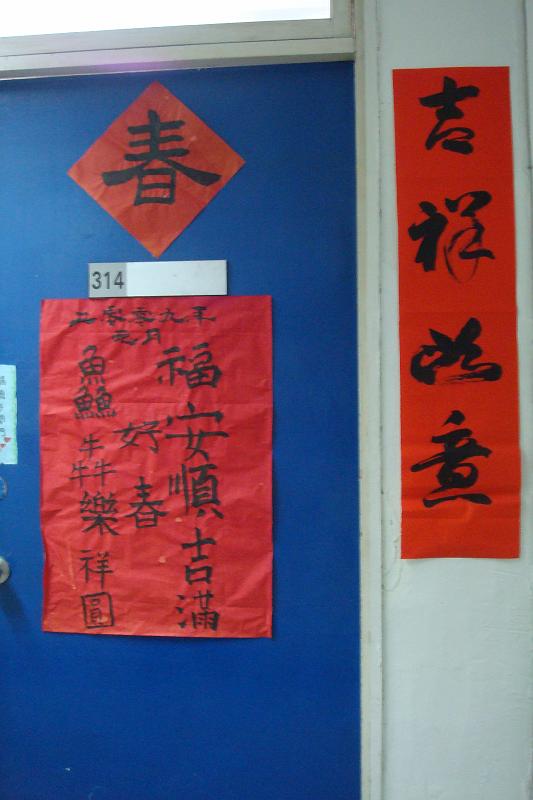 春
314
二零零九年
元月
福安順吉滿
好春
鱻犇樂祥圓
吉祥如意